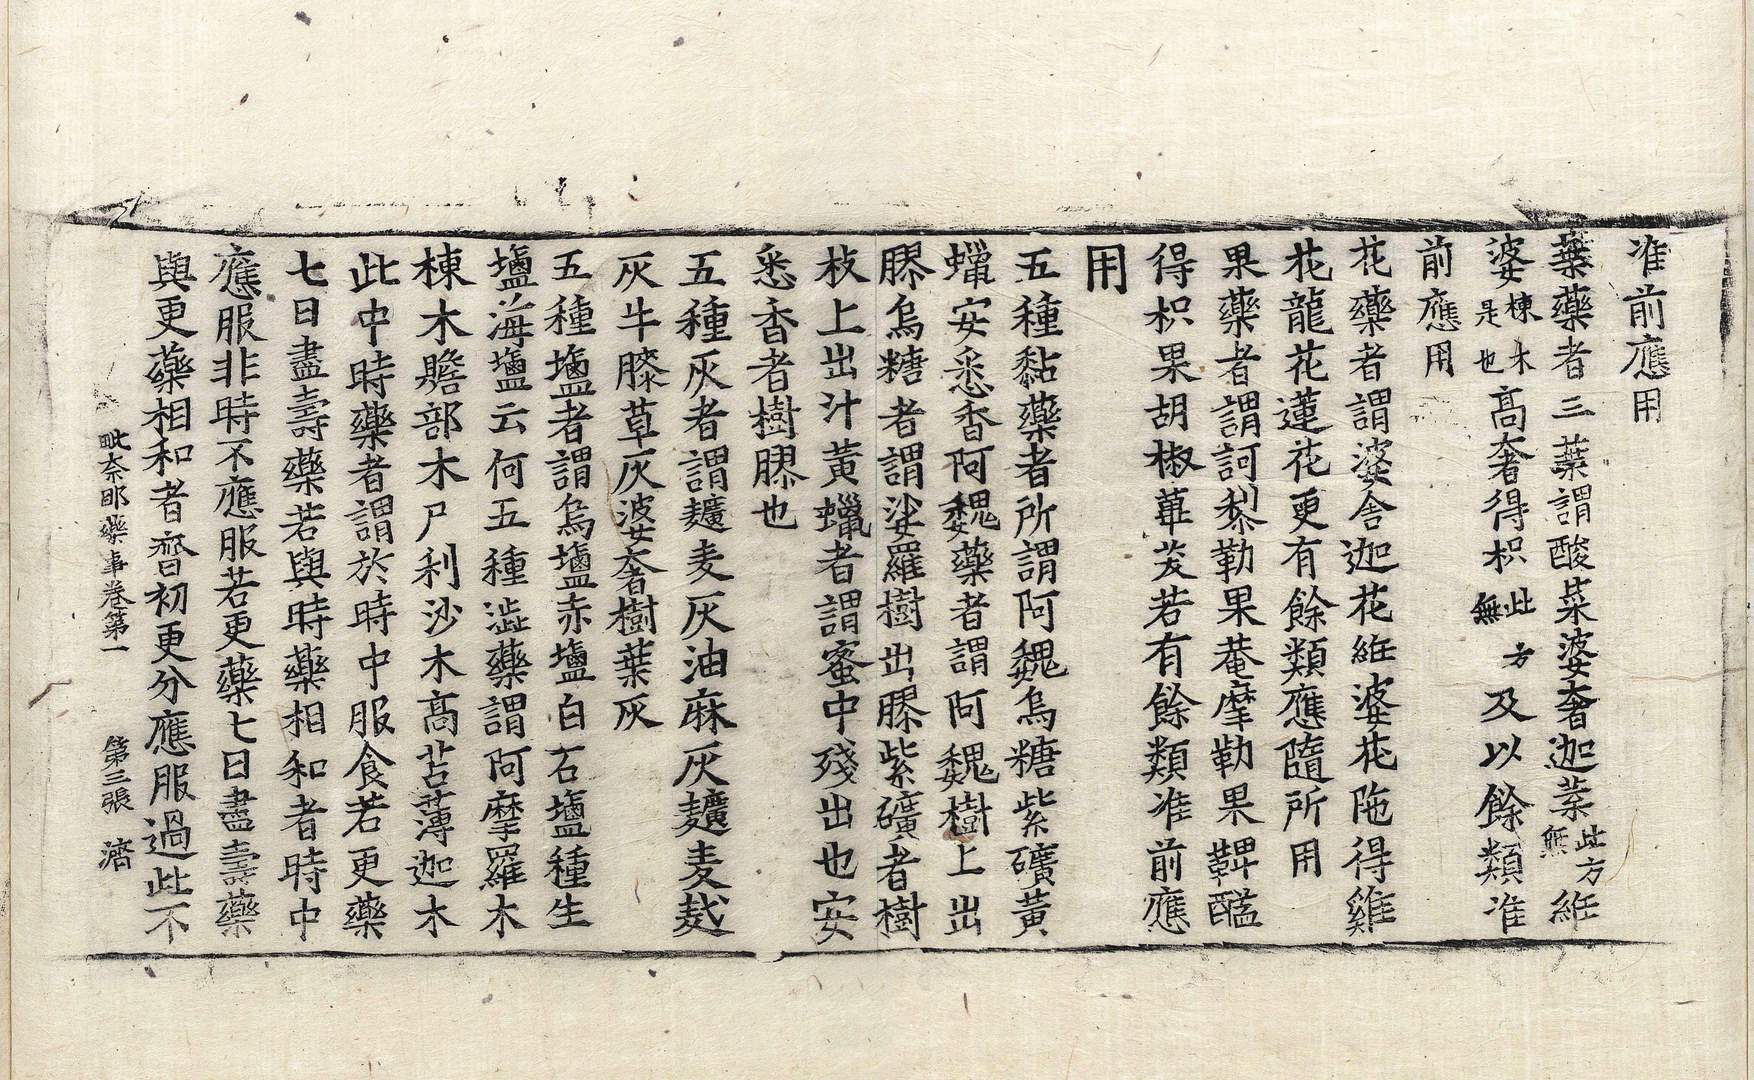 准前應用
葉藥者三葉謂酸菜婆奢迦葉此方無絍
婆楝木是也高奢得枳此方無及以餘類准
前應用
花藥者謂婆舍迦花絍婆花陁得雞
花龍花蓮花更有餘類應隨所用
果藥者謂訶黎勒果菴摩勒果鞞醯
得枳果胡椒蓽茇若有餘類准前應
用
五種黏藥者所謂阿魏烏糖紫礦黃
蠟安悉香阿魏藥者謂阿魏樹上出
膠烏糖者謂娑羅樹出膠紫礦者樹
枝上出汁黃蠟者謂蜜中殘出也安
悉香者樹膠也
五種灰者謂䴪麦灰油麻灰䴪麦𪍿
灰牛膝草灰婆奢樹葉灰
五種鹽者謂烏鹽赤鹽白石鹽種生
鹽海鹽云何五種澁藥謂阿摩羅木
楝木贍部木尸利沙木高苫薄迦木
此中時藥者謂於時中服食若更藥
七日盡壽藥若與時藥相和者時中
應服非時不應服若更藥七日盡壽藥
與更藥相和者齊初更分應服過此不
毗奈耶藥事卷第一 第三張 濟